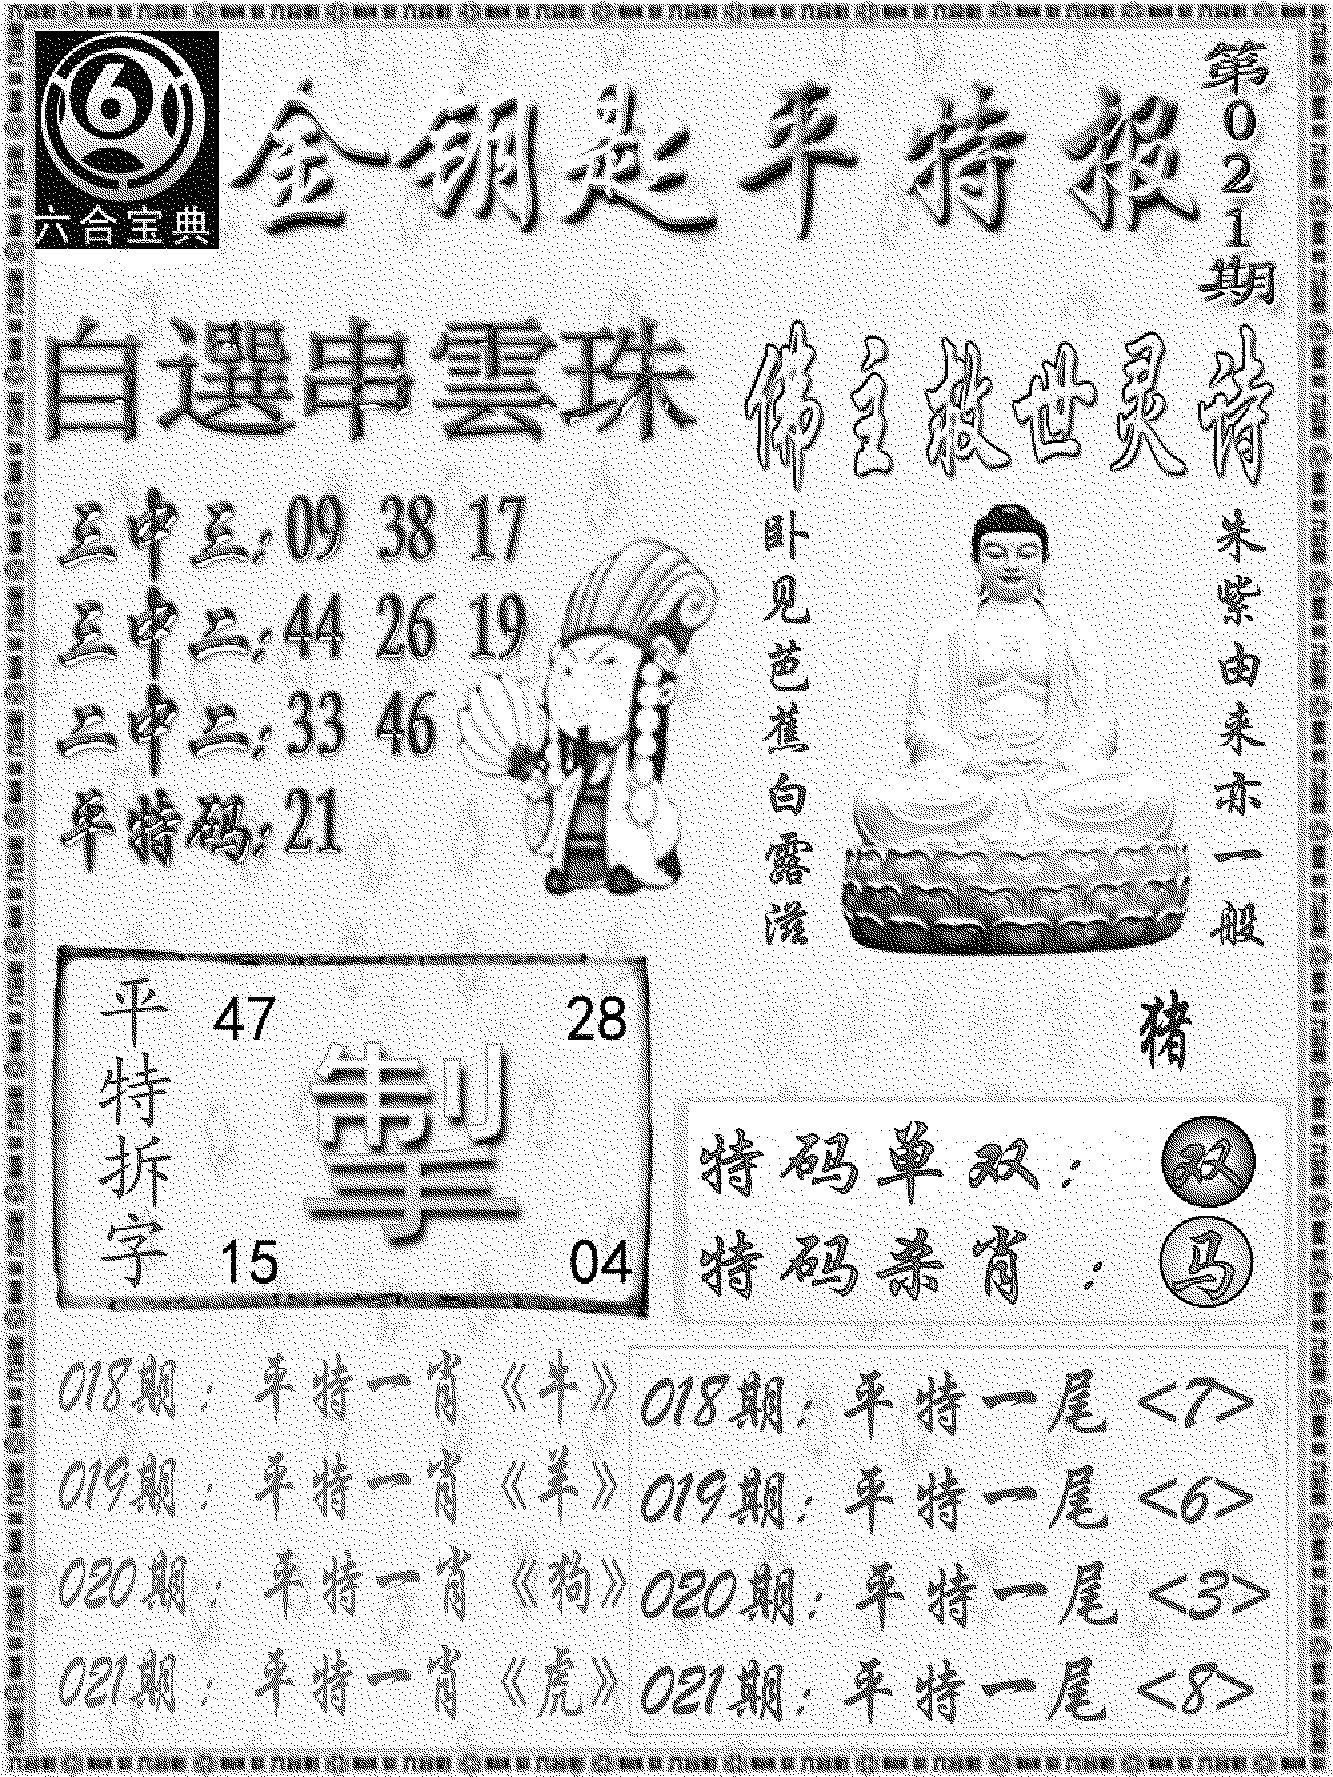 六合宝典
金钥匙平特报
第021期
自選串雲珠
三中三:09 38 17
三中二:44 26 19
二中二:33 46
平特码:21
佛主救世灵诗
朱紫由来亦一般
卧见芭蕉白露滋
猪
平特拆字
47 28
掣
15 04
特码单双:双
特码杀肖:马
018期:平特一肖《牛》
019期:平特一肖《羊》
020期:平特一肖《狗》
021期:平特一肖《虎》
018期:平特一尾<7>
019期:平特一尾<6>
020期:平特一尾<3>
021期:平特一尾<8>